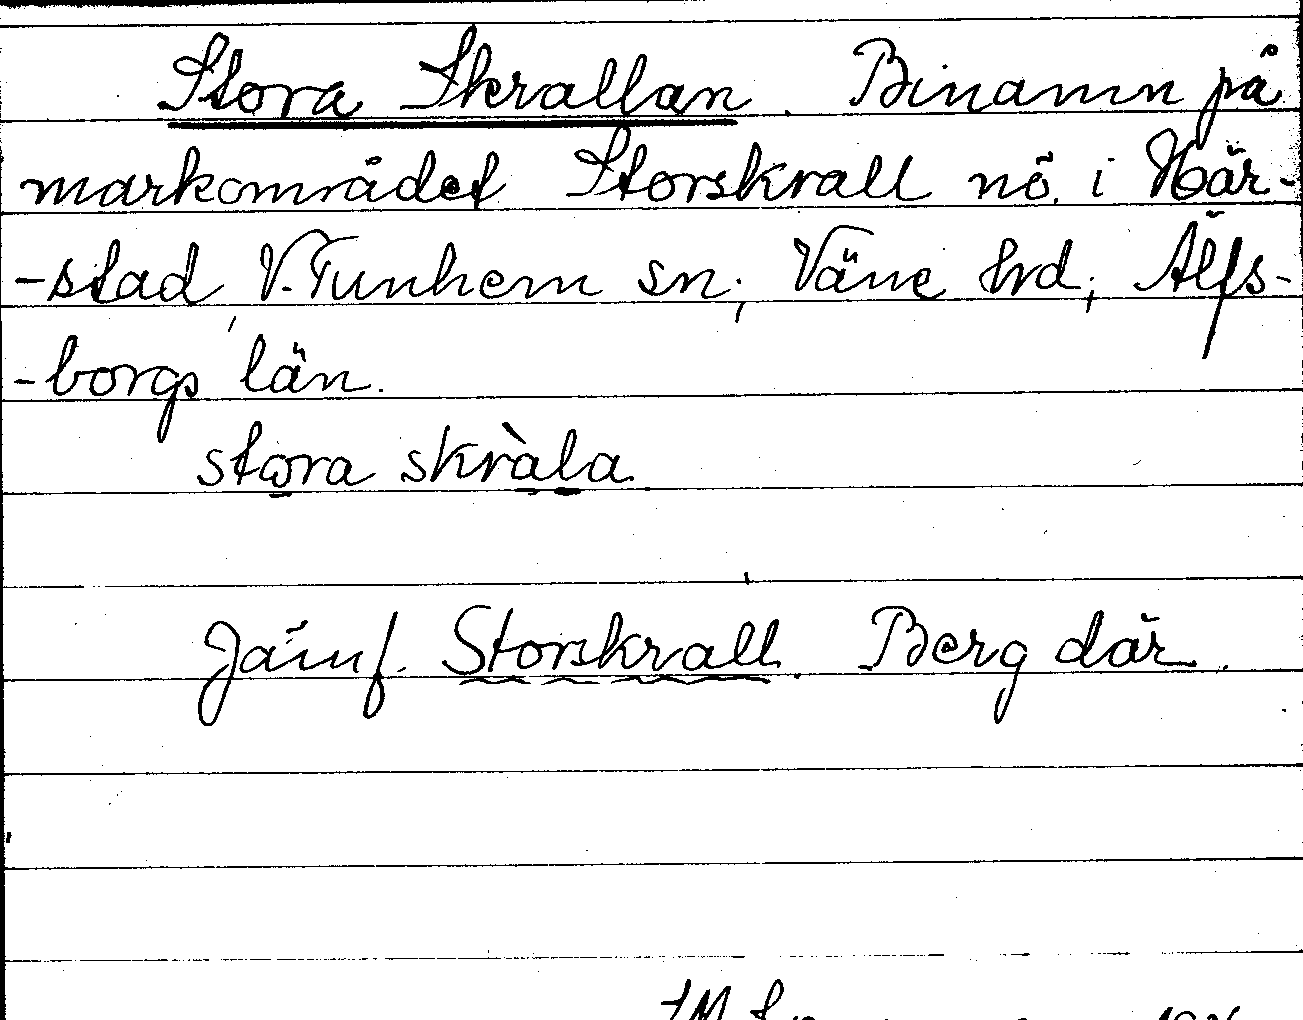 Stora Skrallan. Binamn på
markområdet Storskrall nö. i Här-
-stad, V. Tunhem sn; Väne hrd; Älfs-
-borgs län.
stora skràla.
Jämf. Storskrall. Berg där.